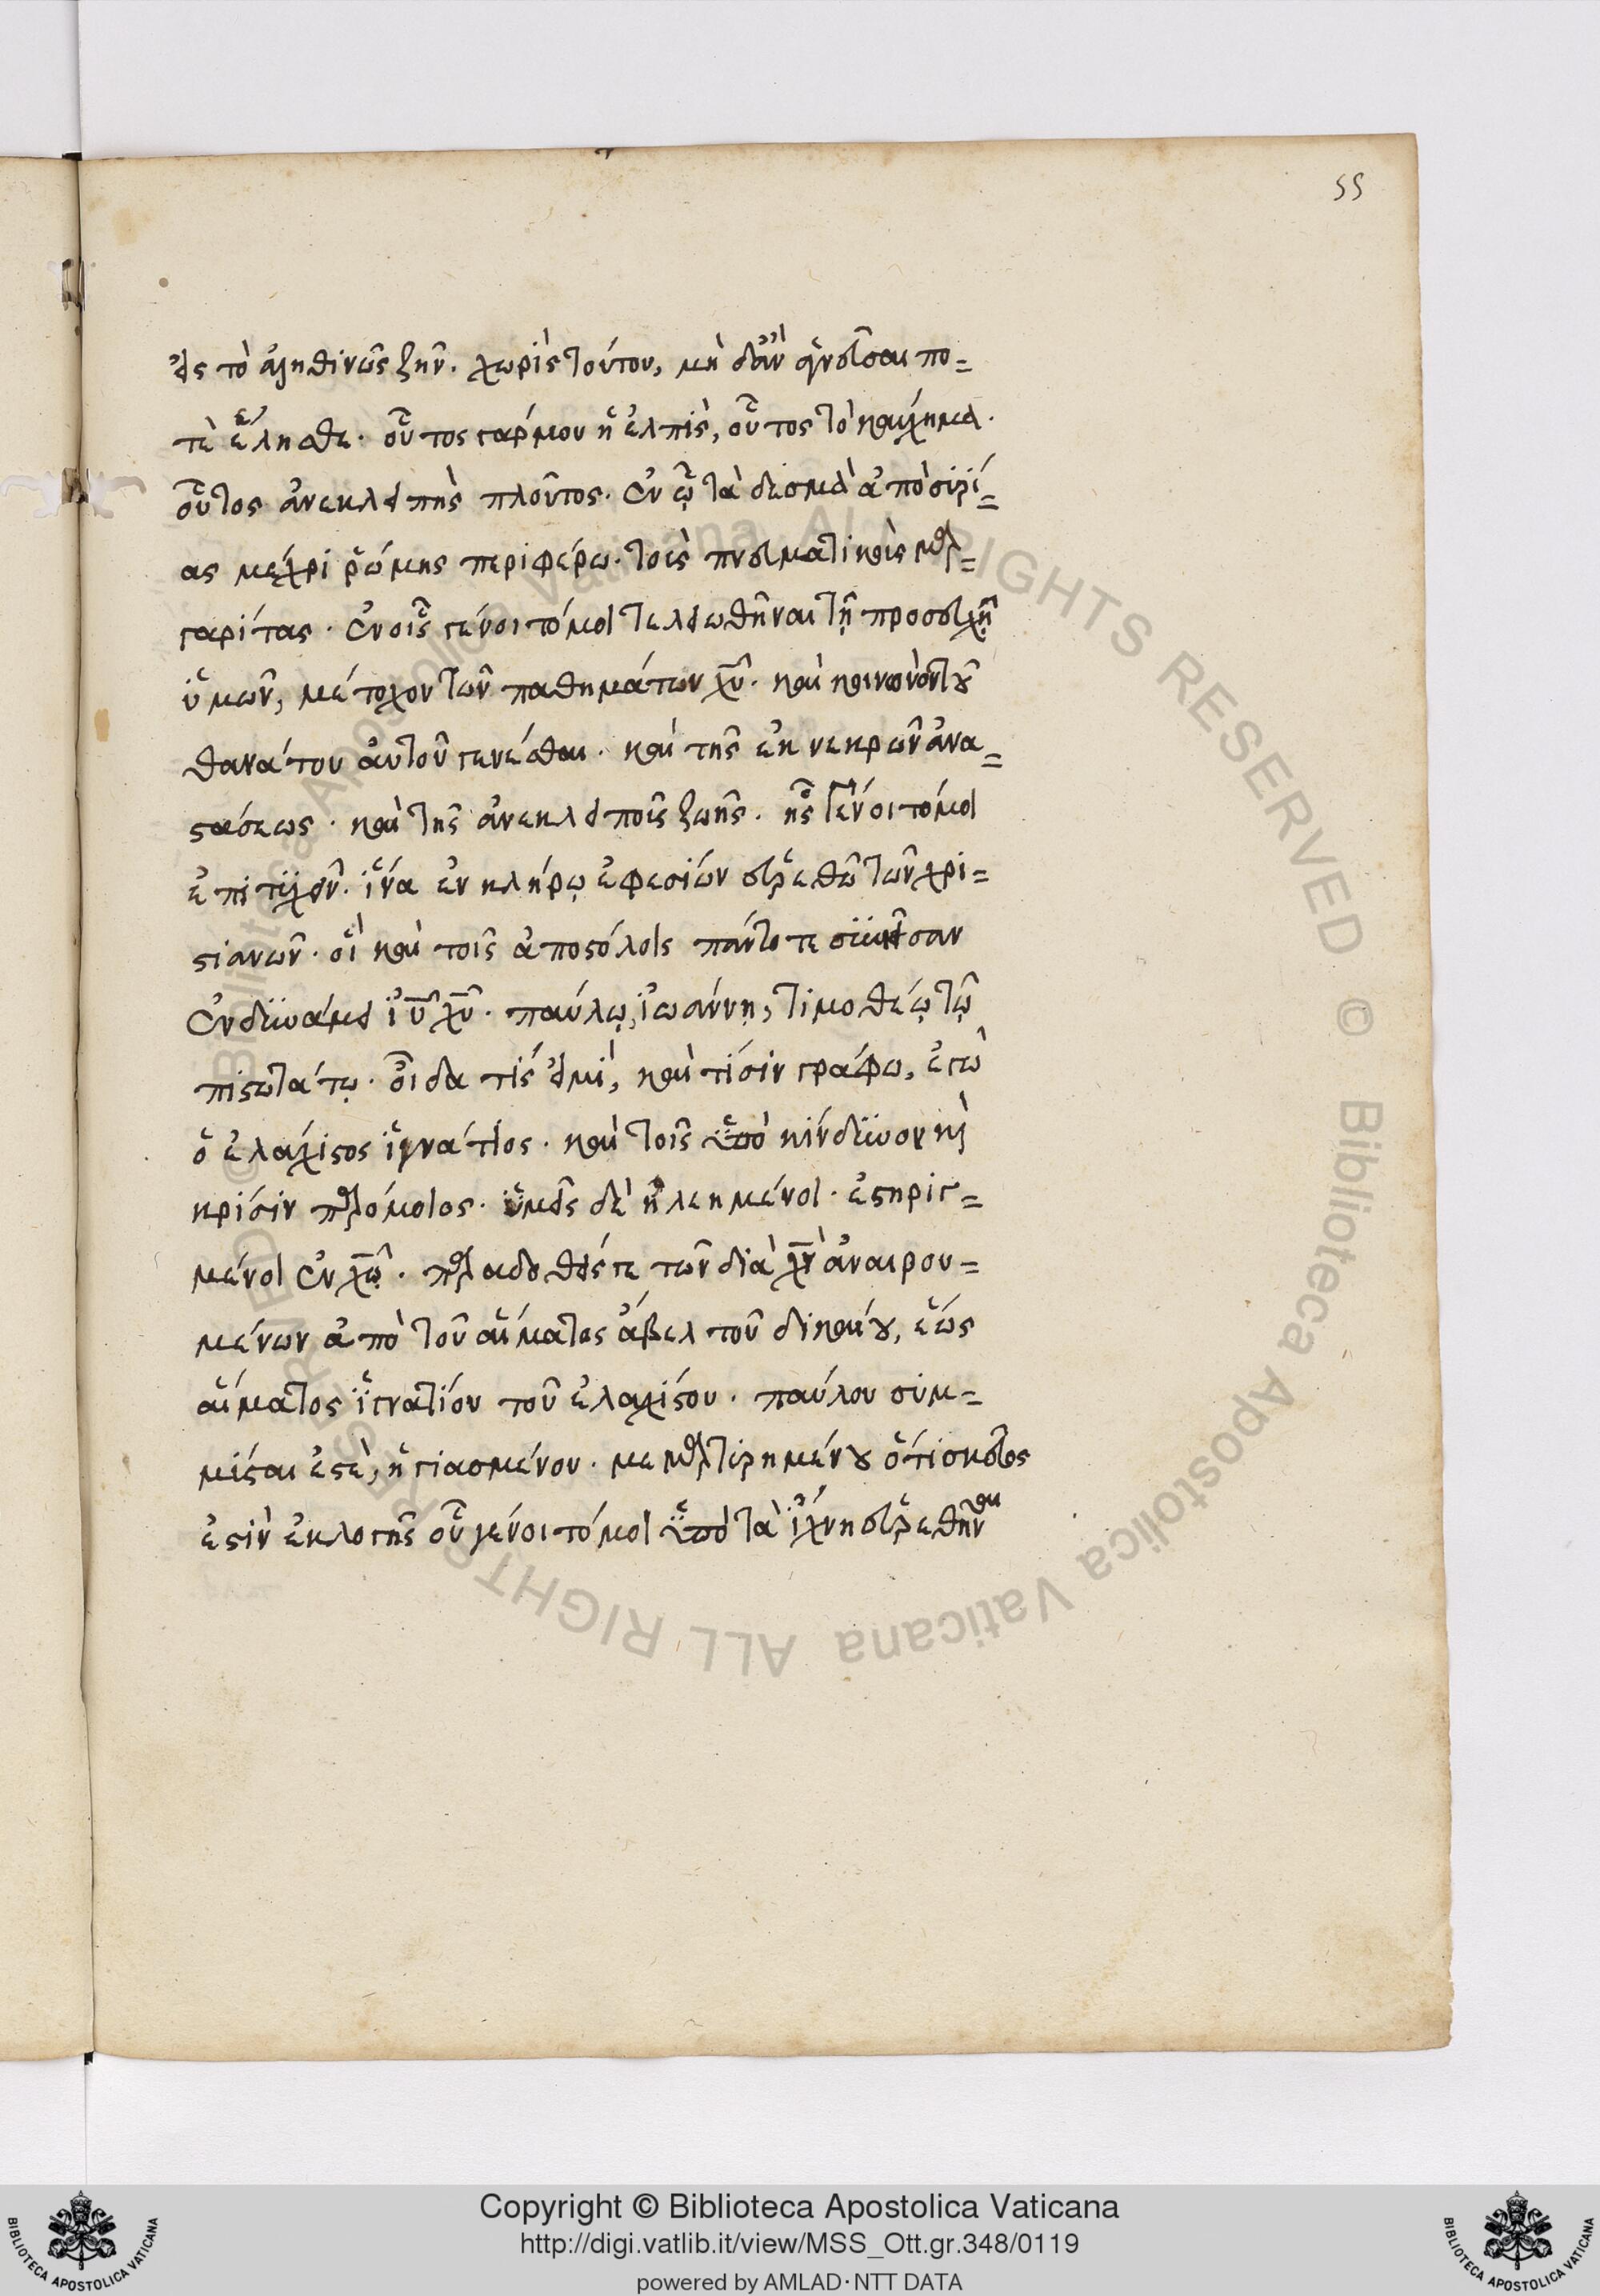 55
εἰς τὸ ἀληθινῶς ζῆν. χωρὶς τούτου, μὴ δ' ἂν ἀναπνεῦσαι πο=
τὲ ἕλησθε. οὗτος γάρ μου ἡ ἐλπὶς, οὗτος τὸ καύχημα.
οὗτος ἀνεκλειπὴς πλοῦτος. ἐν ᾧ τὰ δεσμὰ ἀπὸ συρί=
ας μέχρι ῥώμης περιφέρω. τοὺς πνευματικοὺς μαρ=
γαρίτας. ἐν οἷς γένοιτό μοι τελειωθῆναι τῇ προσευχῇ
ὑμῶν, μέτοχον τῶν παθημάτων χῦ. καὶ κοινωνὸν τοῦ
θανάτου αὐτοῦ γενέσθαι. καὶ τῆς ἐκ νεκρῶν ἀνα=
στάσεως. καὶ τῆς ἀνεκλειποῦς ζωῆς. ἧς γένοιτό μοι
ἐπιτυχεῖν. ἵνα ἐν κλήρῳ ἐφεσίων εὑρεθῶ τῶν χρι=
στιανῶν. οἳ καὶ τοῖς ἀποστόλοις πάντοτε συνῆσαν
ἐν δυνάμει ἰῦ χῦ. παύλῳ, ἰωάννῃ, τιμοθέῳ τῷ
πιστωτάτῳ. οἶδα τίς εἰμὶ, καὶ τίσιν γράφω, ἐγὼ
ὁ ἐλάχιστος ἰγνάτιος. καὶ τοῖς ὑπὸ κίνδυνον καὶ
κρίσιν παρόμοιος. ὑμεῖς δὲ ἠλεημένοι. ἐστηριγ=
μένοι ἐν χῷ. παραδοθέντες τῶν διὰ χν̀ ἀναιρου=
μένων ἀπὸ τοῦ αἵματος ἄβελ τοῦ δικαίου, ἕως
αἵματος ἰγνατίου τοῦ ἐλαχίστου. παύλου συμ=
μύσται ἐστὲ, ἡγιασμένου. μεμαρτυρημένου ὅτι σκεῦος
ἐστὶν ἐκλογῆς οὗ γένοιτό μοι ὑπὸ τὰ ἴχνη εὑρεθῆναι
Copyright © Biblioteca Apostolica Vaticana
http://digi.vatlib.it/view/MSS_Ott.gr.348/0119
powered by AMLAD·NTT DATA